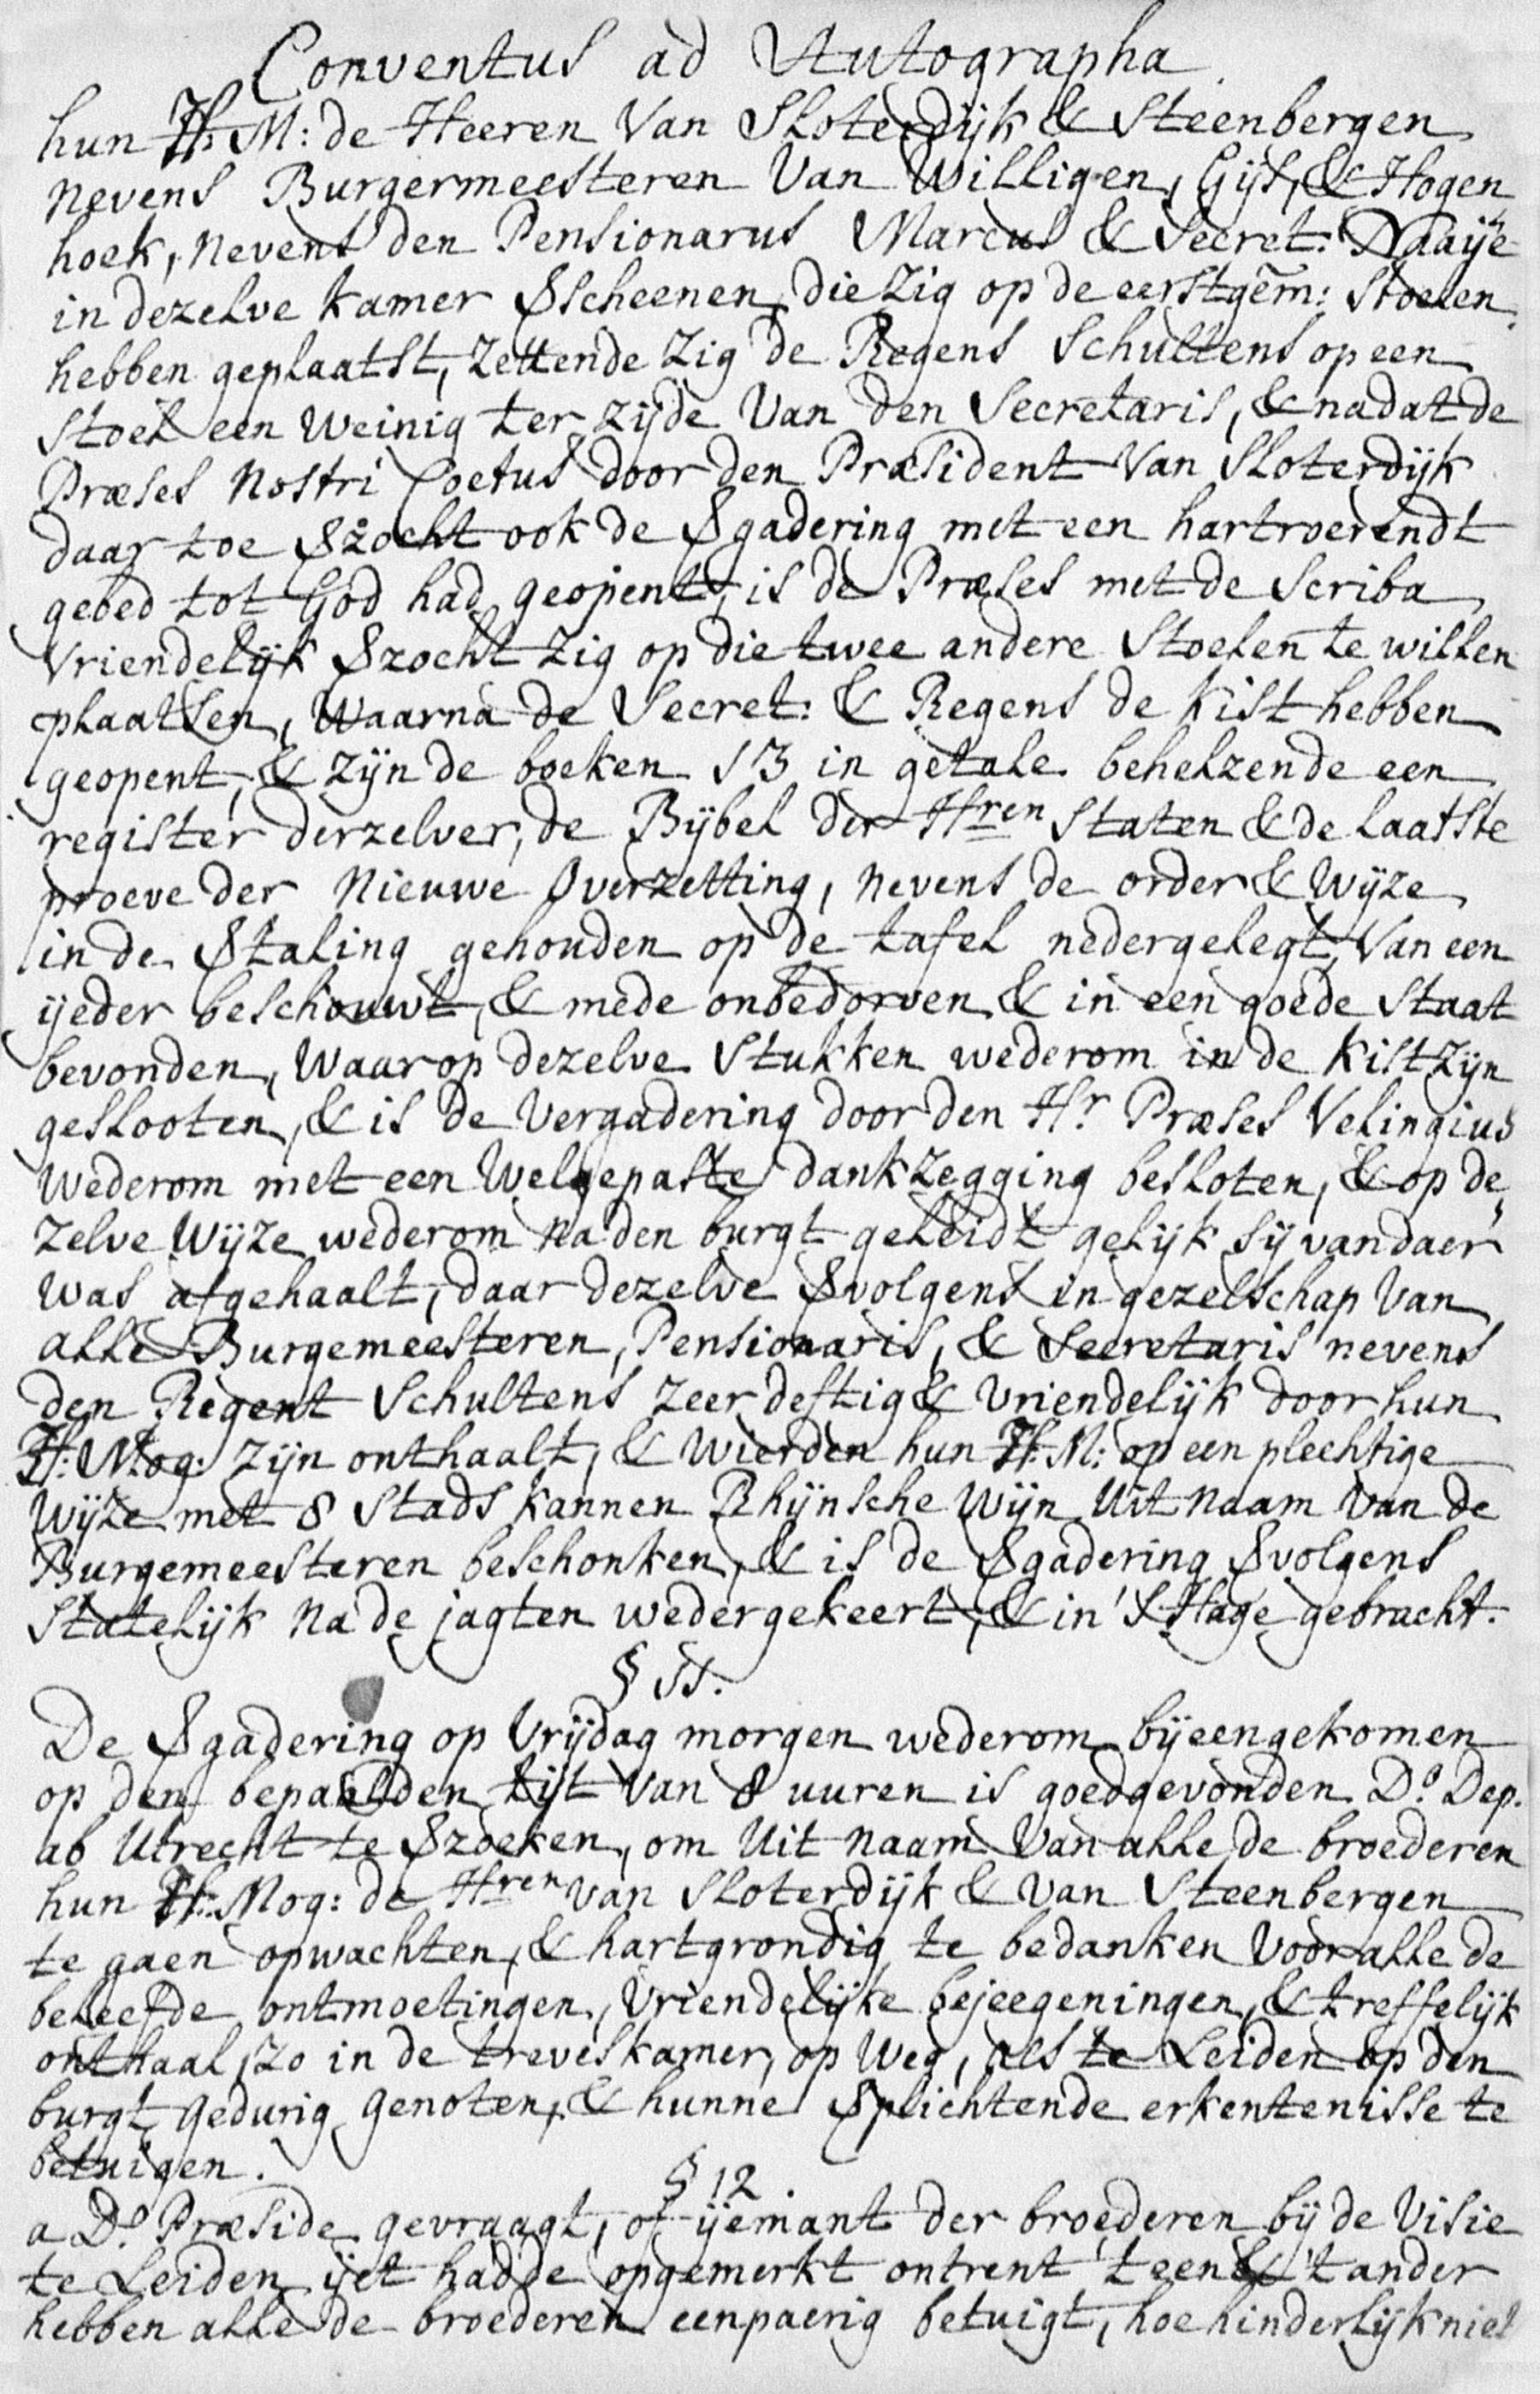 Conventus ad Autographa
hun H: M: de Heeren Van Sloterdijk & Steenbergen
nevens Burgermeesteren Van Willigen, Gijs, & Hogen
hoek, nevens den Pensionarus Marcus & Secret: Naaije
in dezelve kamer Sscheenen, die Zig op de eerstgem̃: Stoelen
hebben geplaatst, Zettende Zig de Regens Schultens op een
Stoel een Weinig ter zijde Van den Secretaris, & nadat de
Præses Nostri Coetus door den Præsident Van Sloterdijk
daar toe Szocht ook de Sgadering met een hartroerendt
gebed tot God had geopent, is de Præses met de Scriba
Vriendelijk Szocht Zig op die twee andere Stoelen te willen
plaatsen, Waarna de Secret: & Regens de Kist hebben
geopent, & zijn de boeken 13 in getale behelzende een
register derzelver, de Bijbel der Hren Staten & de laatste
proeve der Nieuwe Overzetting, nevens de order & Wijze
in de Staling gehouden op de tafel nedergelegt, Van een
ijeder beschouwt, & mede onbedorven & in een goede Staat
bevonden, Waarop dezelve Stukken wederom in de Kist Zijn
geslooten, & is de Vergadering door den Hr Præses Velingius
Wederom met een Welgepaste dankzegging besloten, & op de„
Zelve Wijze wederom Na den burgt geleidt gelijk sij van daer
Was afgehaalt, daar dezelve Svolgens in gezelschap Van
alle Burgemeesteren, Pensionaris, & Secretaris nevens
den Regent Schultens Zeer deftig & Vriendelijk door hun
H: Mog: Zijn onthaalt, & Wierden hun H: M: op een plechtige
Wijze met 8 Stads kannen Rhijnsche Wijn Uit Naam Van de
Burgemeesteren beschonken, & is de Sgadering Svolgens
Statelijk Na de jagten wedergekeert, & in 'S Hage gebracht.
§ 11.
De Sgadering op Vrijdag morgen wederom bijeengekomen
op den bepaalden tijt Van 8 uuren is goedgevonden Do. Dep.
ab Utrecht te Szoeken, om Uit Naam Van alle de broederen
hun H: Mog: de Hren Van Sloterdijk & Van Steenbergen
te gaen opwachten, & hartgrondig te bedanken Voor alle de
beleefde ontmoetingen, Vriendelijke bejeegeningen, & treffelijk
onthaal, Zo in de treveskamer, op Weg, als te Leiden op den
burgt gedurig genoten, & hunne Splichtende erkentenisse te
betuigen.
§ 12.
a Do. Præside gevraagt, of ijemant der broederen bij de Visie
te Leiden ijet hadde opgemerkt ontrent 't een & 't ander
hebben alle de broederen eenpaerig betuigt, hoe hinderlijk niet